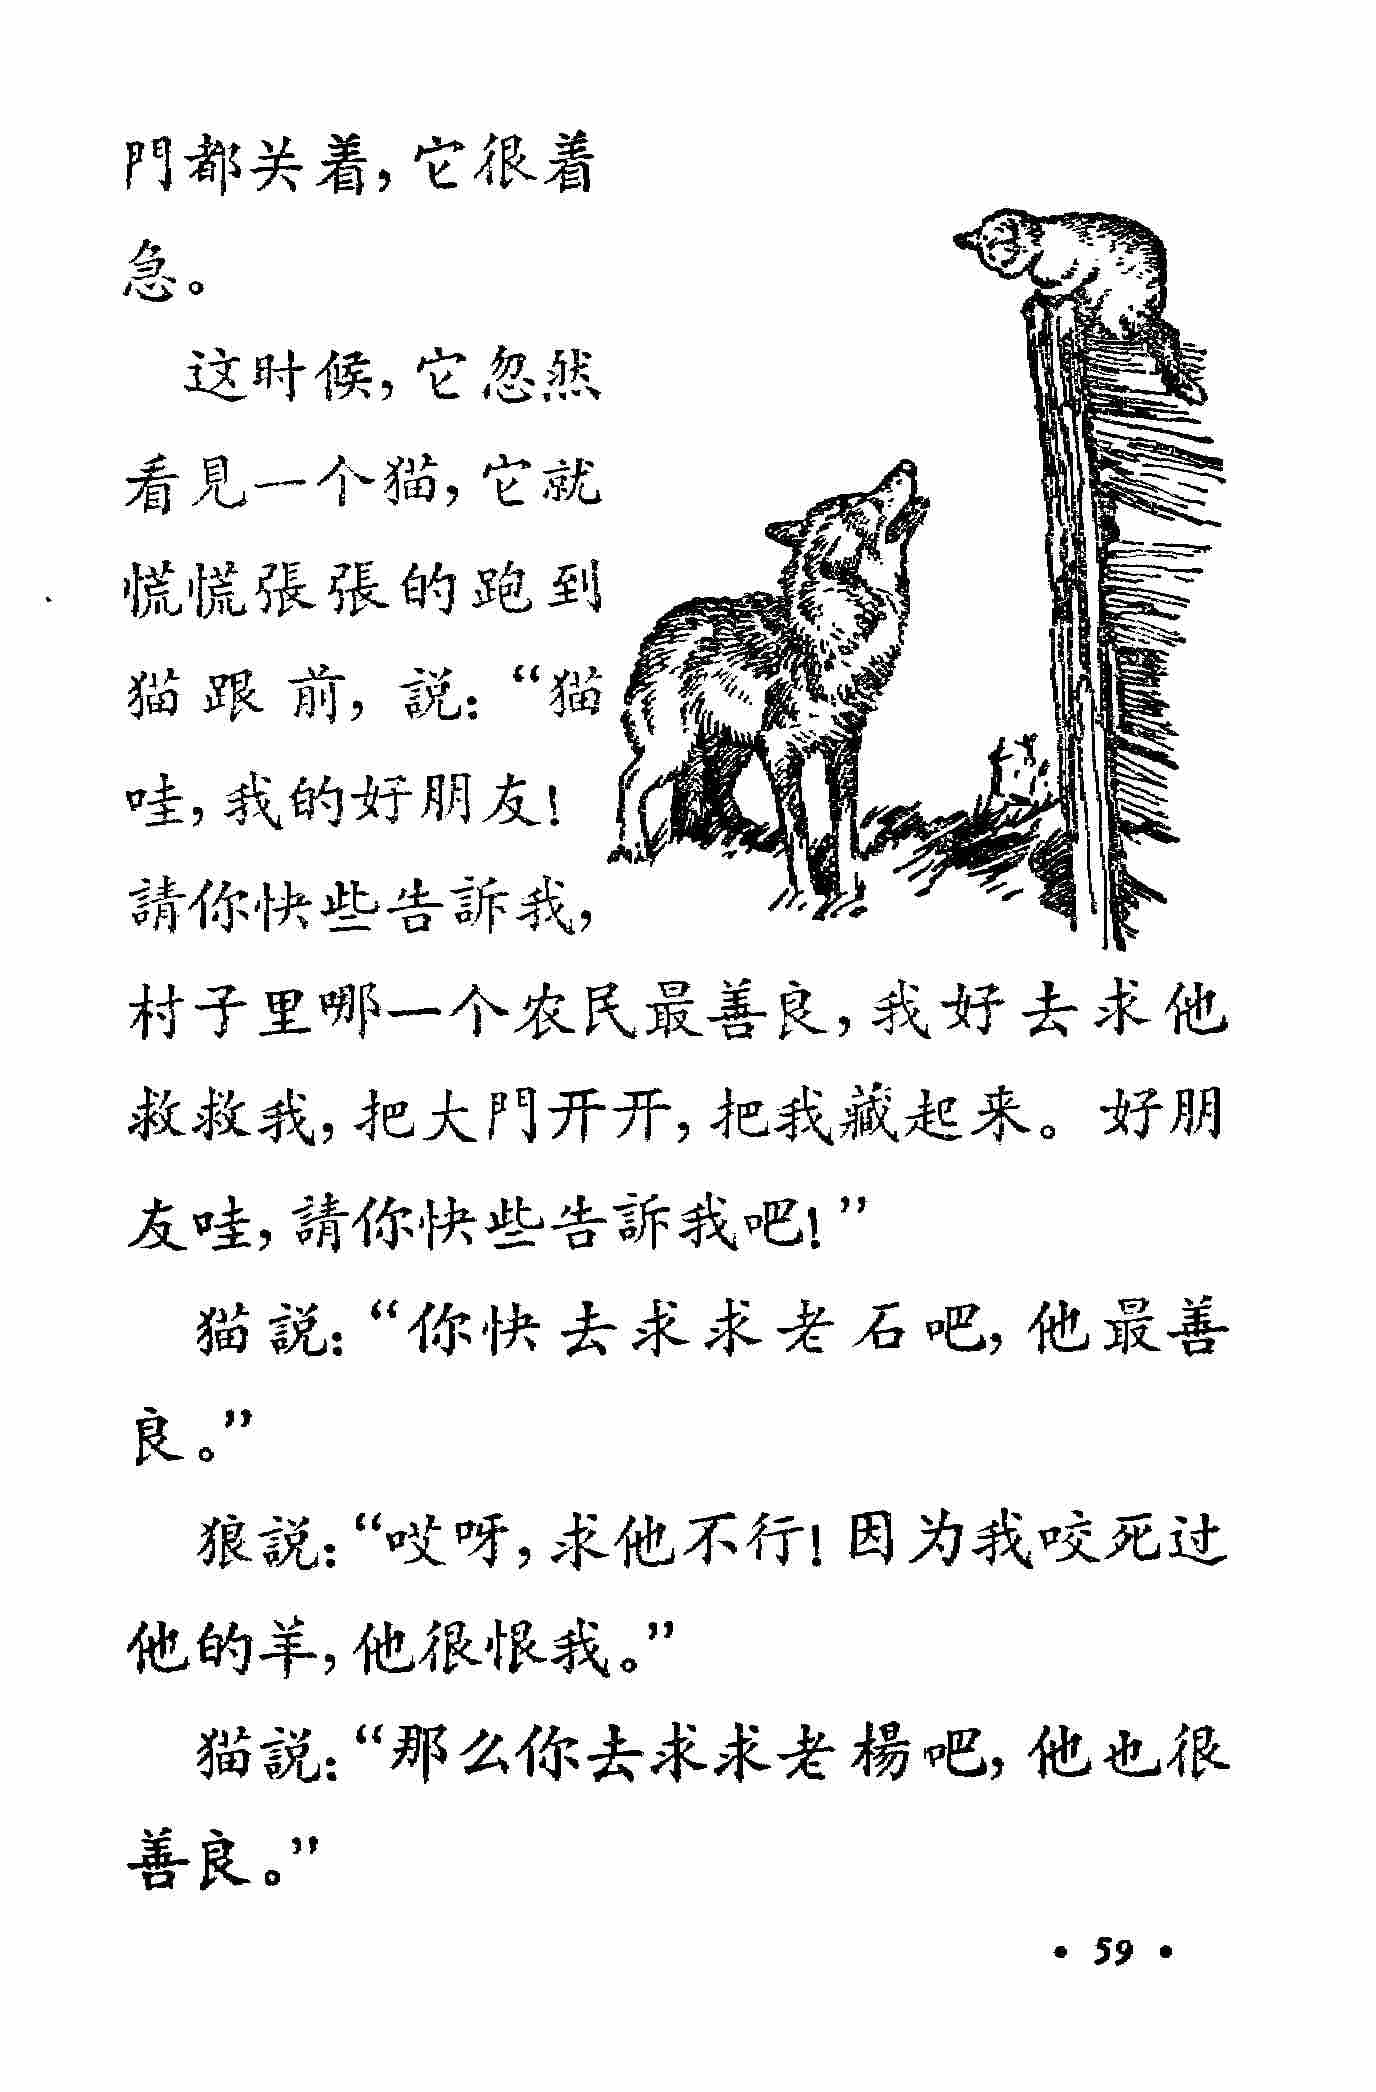 門都关着，它很着
急。
这时候，它忽然
看見一个猫，它就
慌慌張張的跑到
猫跟前，説：“猫
哇，我的好朋友！
請你快些告訴我，
村子里哪一个农民最善良，我好去求他
救救我，把大門开开，把我藏起来。好朋
友哇，請你快些告訴我吧！”
猫説：“你快去求求老石吧，他最善
良。”
狼説：“哎呀，求他不行！因为我咬死过
他的羊，他很恨我。”
猫説：“那么你去求求老楊吧，他也很
善良。”
• 59 •